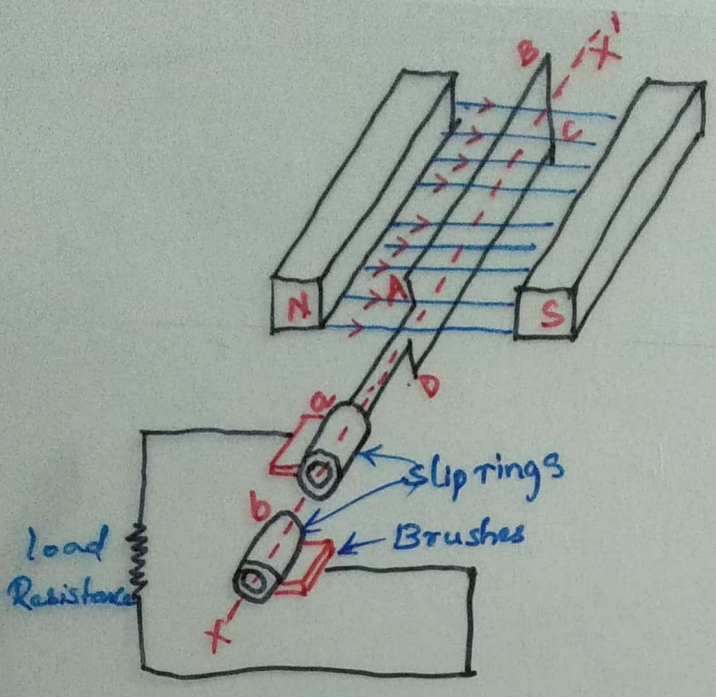 B
X'
C
N
A
S
D
a
Slip rings
b
Brushes
load
Resistance
X